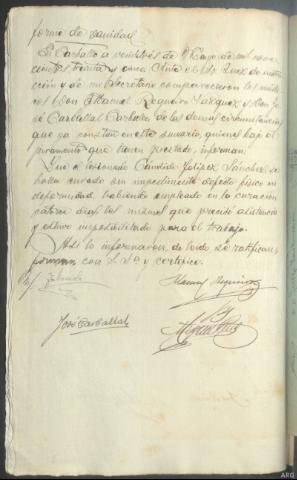 forme de sanidad
En Carballo a veintitrés de Mayo de mil nove
cientos treinta y cinco Ante el Sr. Juez de instruc
ción y de mi Secretario comparecieron los médi
cos Don Manuel Regueiro Vazquez y Don Jo
sé Carballal Carballo de las demas circunstancias
que ya constan en este sumario, quienes bajo el
juramento que tienen prestado, informan:
Que el lesionado Cándido Sánchez se
halla curado sin impedimento defecto físico ni
deformidad, habiendo empleado en la curación
catorce dias del mismo que precisó asistencia
y estuvo imposibilitado para el trabajo.
Asi lo informaron, de leido se ratifican
firman con S. Sª y certifico.
Manuel Regueiro
José Carballal